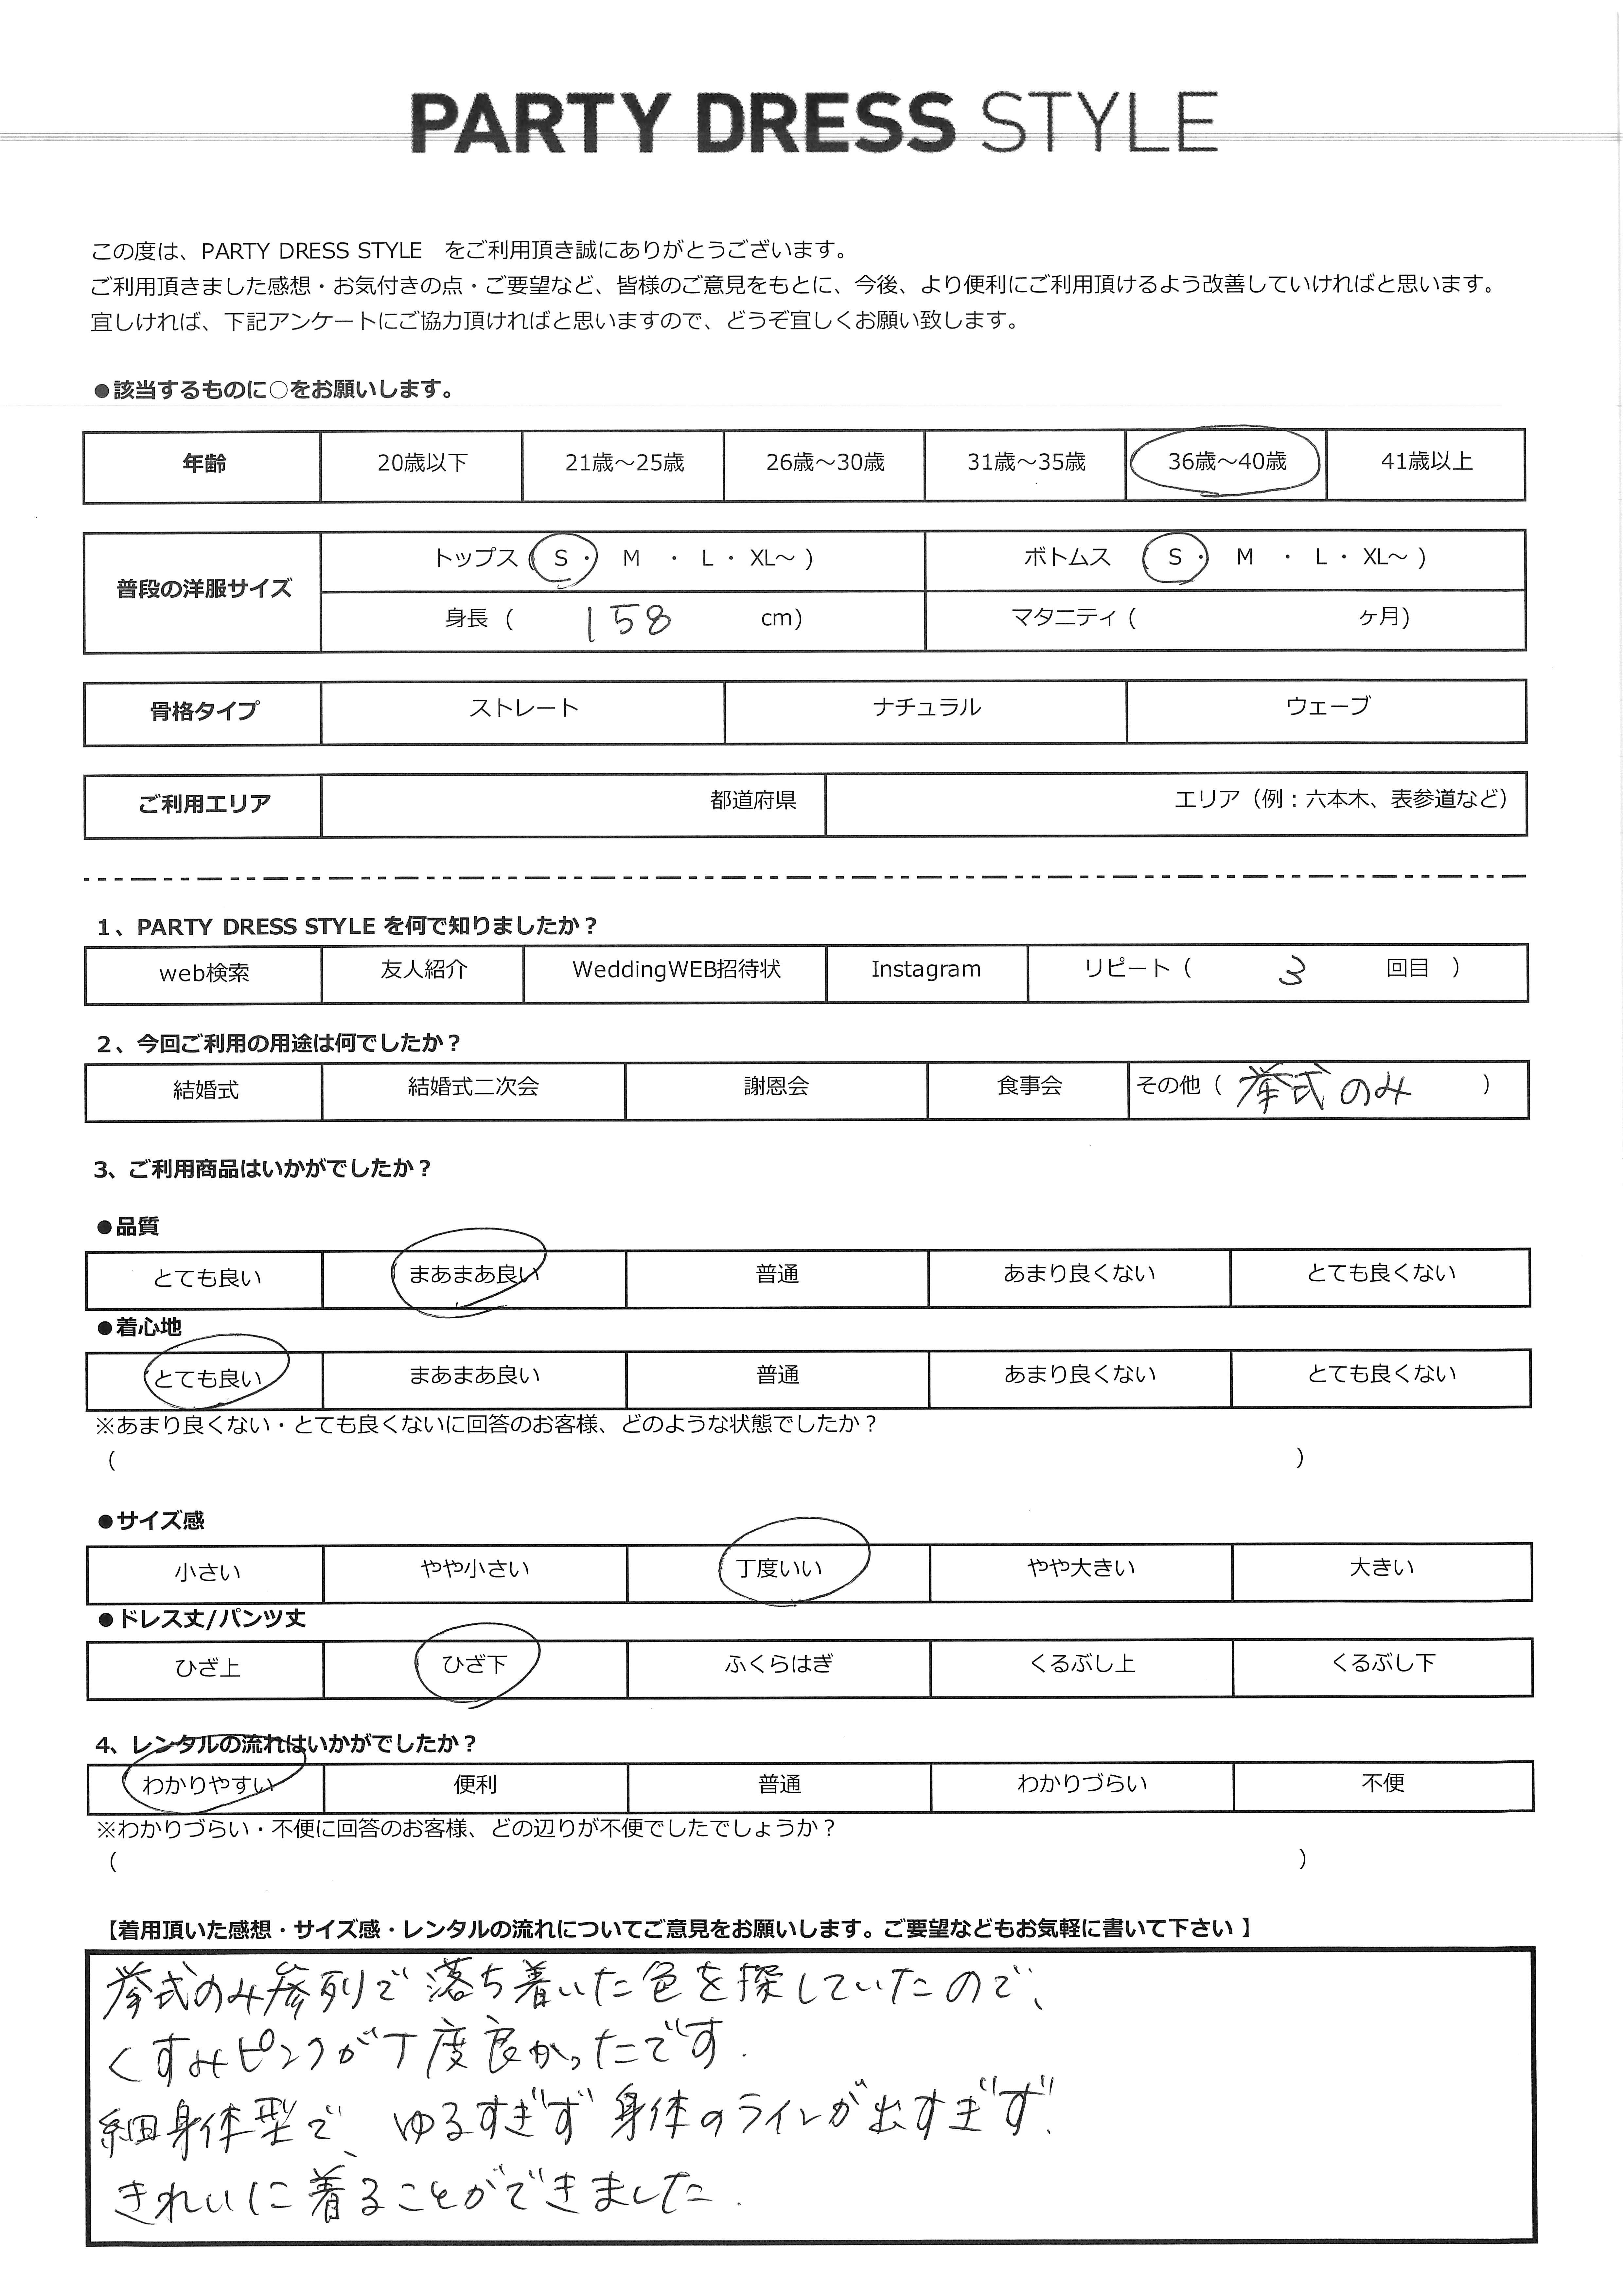 PARTY DRESS STYLE
この度は、PARTY DRESS STYLE　をご利用頂き誠にありがとうございます。
ご利用頂きました感想・お気付きの点・ご要望など、皆様のご意見をもとに、今後、より便利にご利用頂けるよう改善していければと思います。
宜しければ、下記アンケートにご協力頂ければと思いますので、どうぞ宜しくお願い致します。
●該当するものに○をお願いします。
年齢 20歳以下 21歳～25歳 26歳～30歳 31歳～35歳 36歳～40歳 41歳以上
普段の洋服サイズ
トップス（ S ・ M ・ L ・ XL～ ） ボトムス （ S ・ M ・ L ・ XL～ ）
身長（ 158 cm） マタニティ（ ヶ月）
骨格タイプ ストレート ナチュラル ウェーブ
ご利用エリア 都道府県 エリア（例：六本木、表参道など）
1、PARTY DRESS STYLE を何で知りましたか？
web検索 友人紹介 WeddingWEB招待状 Instagram リピート（ 3 回目 ）
2、今回ご利用の用途は何でしたか？
結婚式 結婚式二次会 謝恩会 食事会 その他（ 挙式のみ ）
3、ご利用商品はいかがでしたか？
●品質
とても良い まあまあ良い 普通 あまり良くない とても良くない
●着心地
とても良い まあまあ良い 普通 あまり良くない とても良くない
※あまり良くない・とても良くないに回答のお客様、どのような状態でしたか？
（ ）
●サイズ感
小さい やや小さい 丁度いい やや大きい 大きい
●ドレス丈/パンツ丈
ひざ上 ひざ下 ふくらはぎ くるぶし上 くるぶし下
4、レンタルの流れはいかがでしたか？
わかりやすい 便利 普通 わかりづらい 不便
※わかりづらい・不便に回答のお客様、どの辺りが不便でしたでしょうか？
（ ）
【着用頂いた感想・サイズ感・レンタルの流れについてご意見をお願いします。ご要望などもお気軽に書いて下さい 】
挙式のみ参列で落ち着いた色を探していたので、
くすみピンクが丁度良かったです.
細身体型で、ゆるすぎず身体のラインが出すぎず.
きれいに着ることができました.